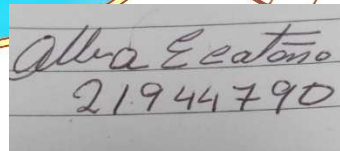 Alba E Castaño
21944790